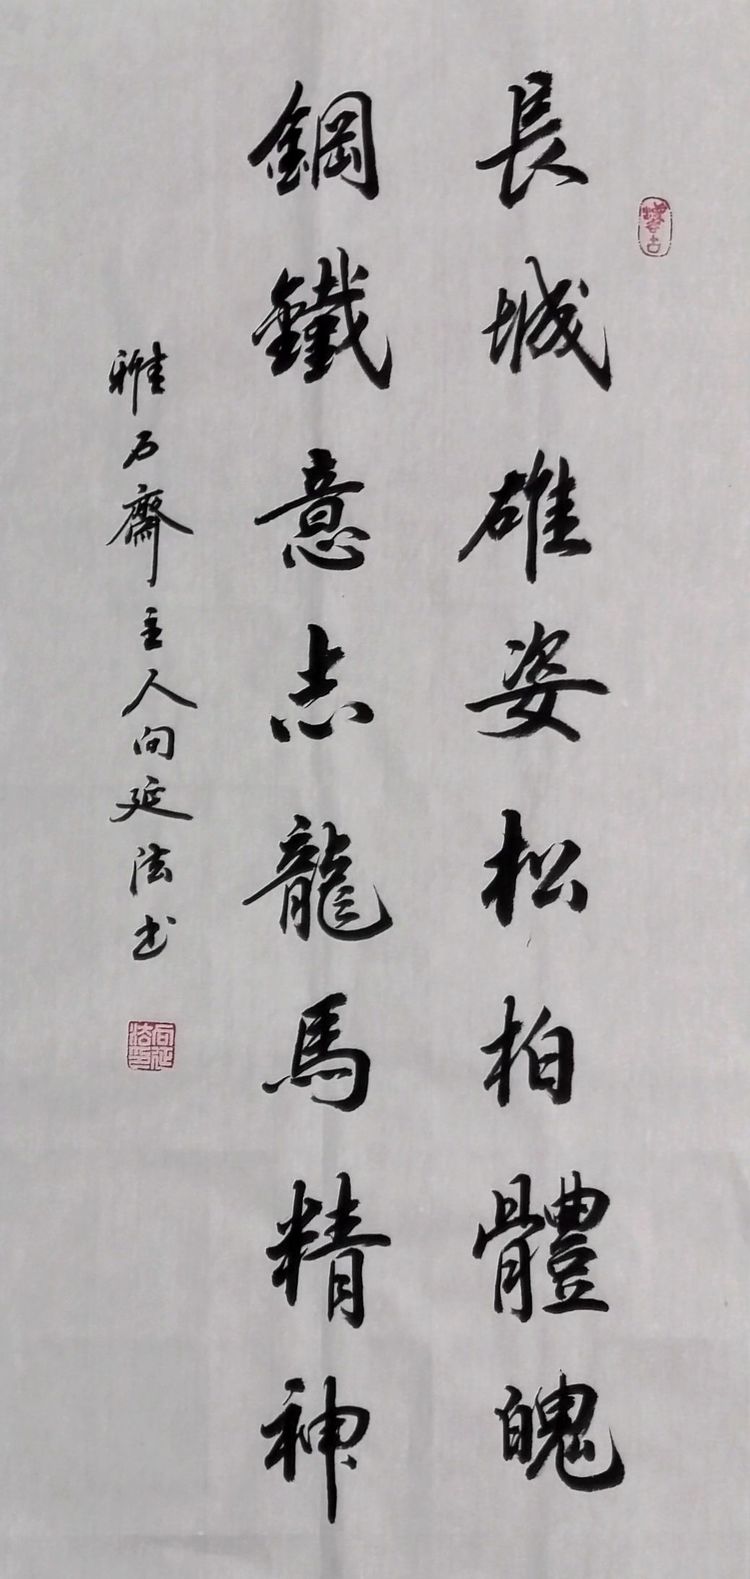 長城雄姿松柏體魄
鋼鐵意志龍馬精神
雅石齋主人向延法書
向延法印